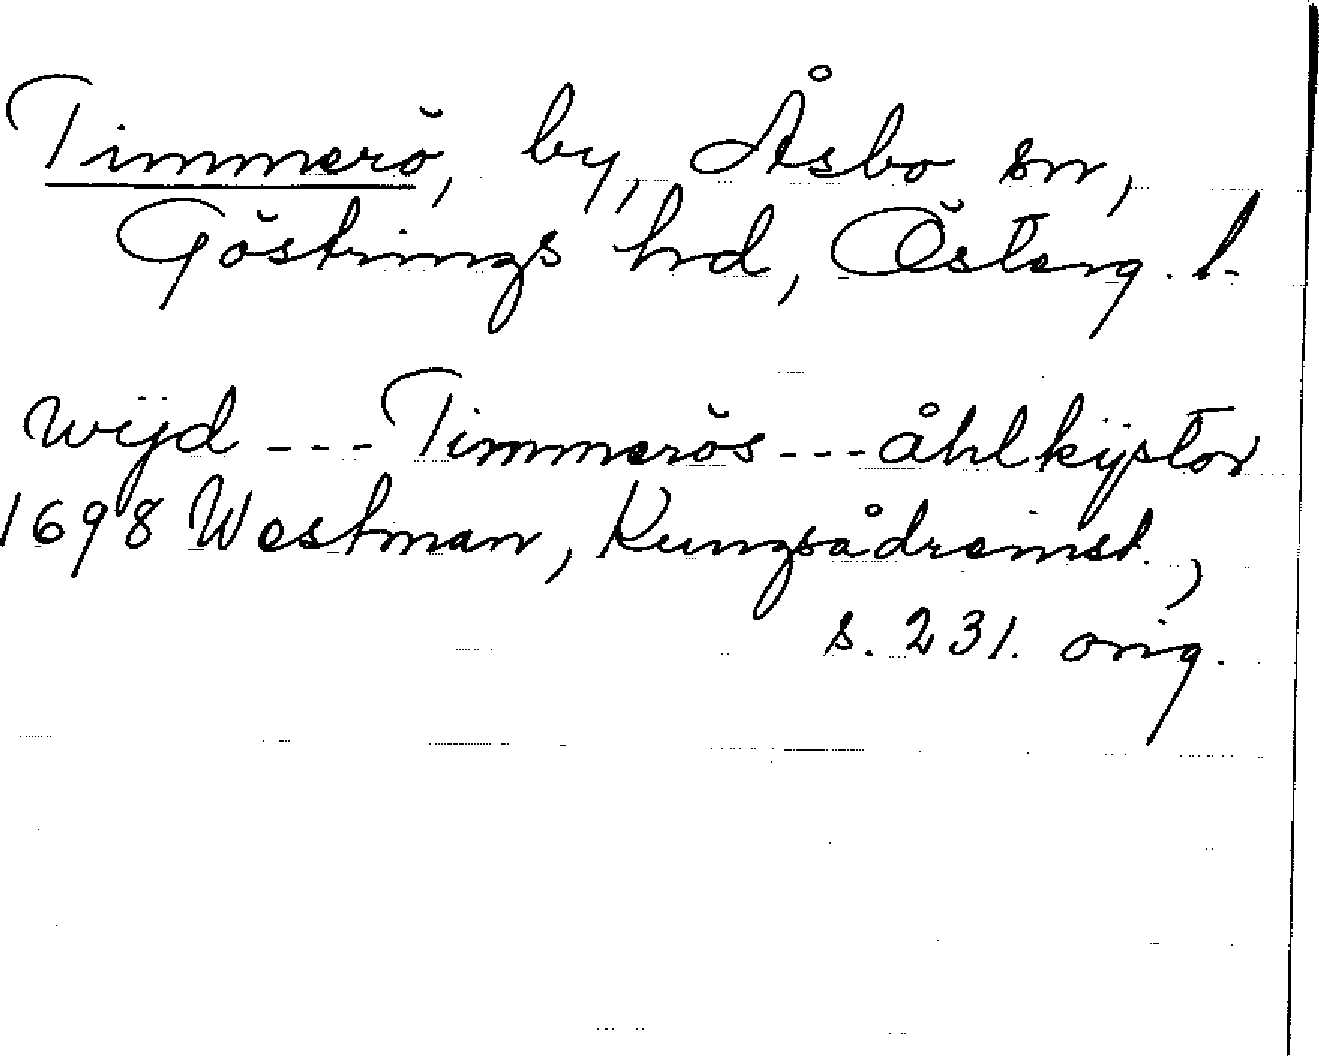 Timmerö, by, Åsbo sn,
Göstrings hd, Österg. l.
wijd --- Timmerös --- åhlkijstor
1698 Westman, Kungsådreinst.,
s. 231. orig.